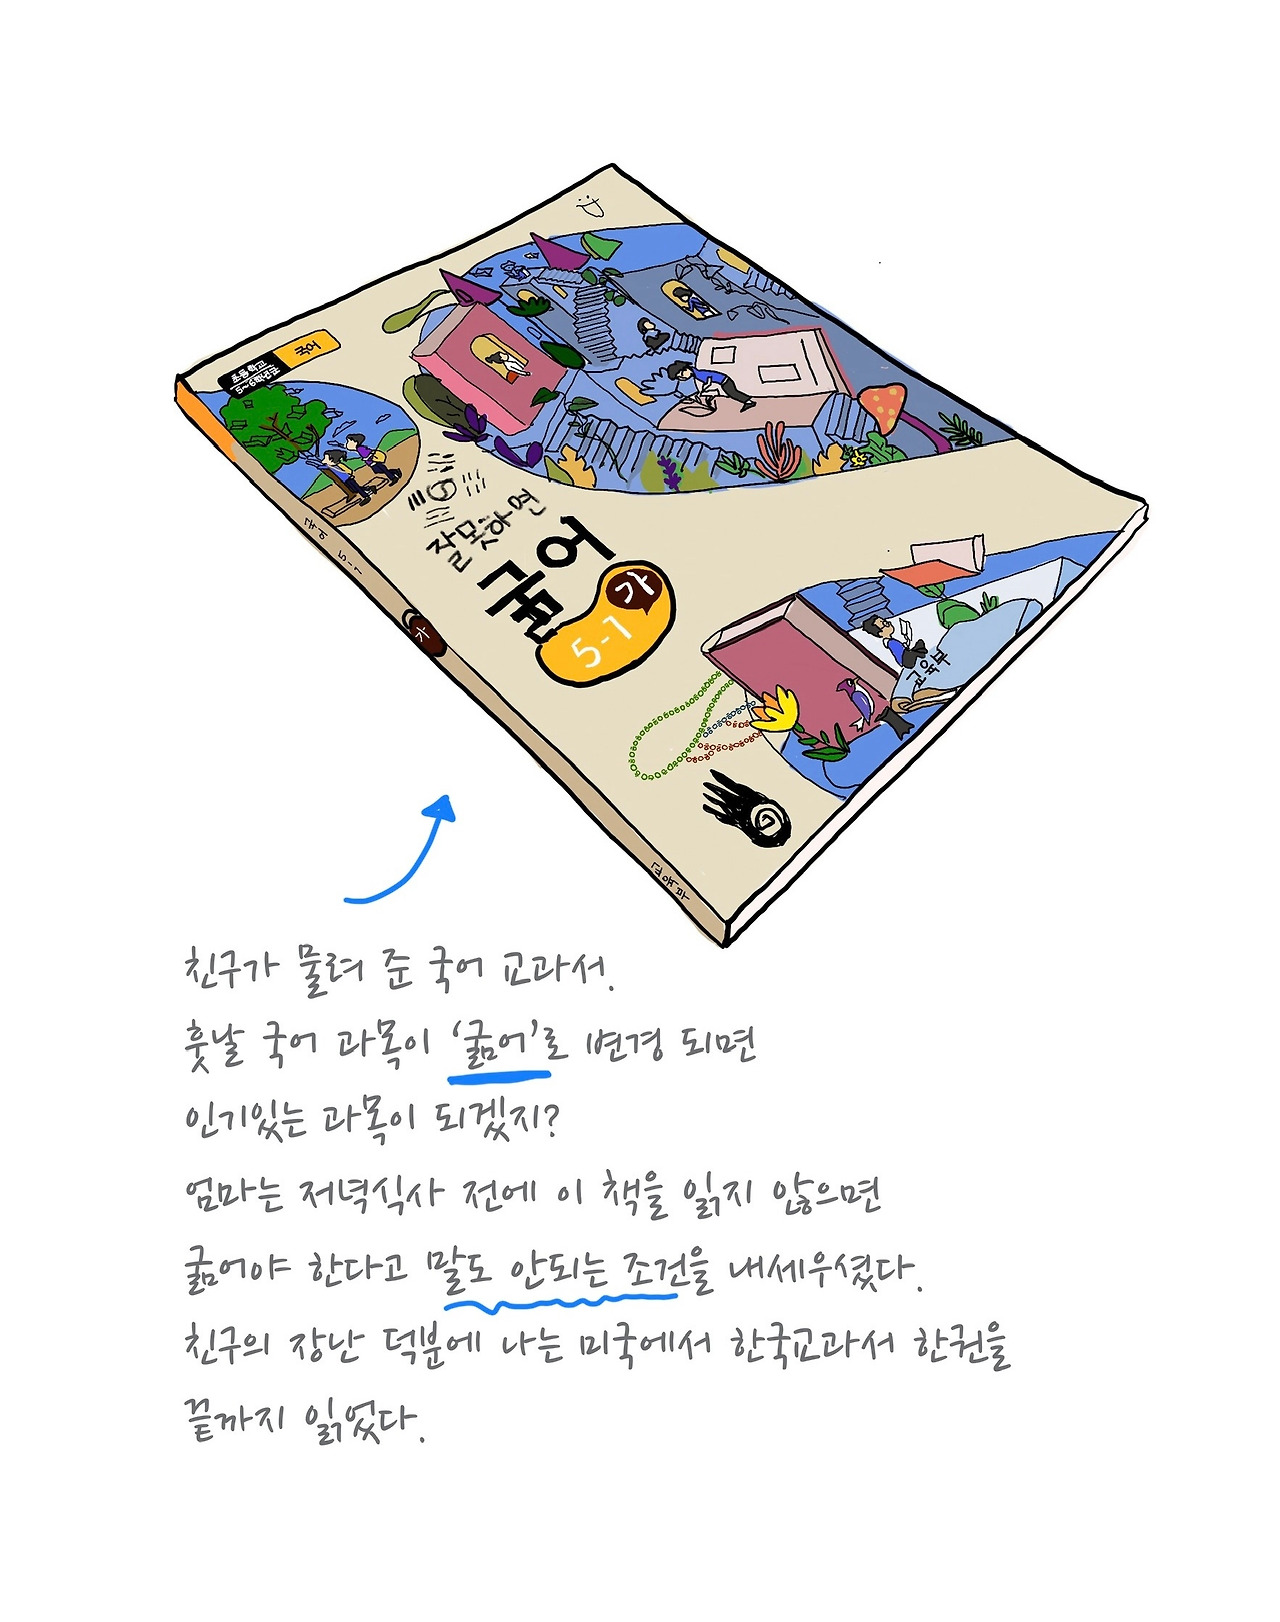 국어
초등학교
5~6학년군
잘못하면
굶어
가
5-1
국어 5-1
가
교육부
교육부
친구가 물려 준 국어 교과서.
훗날 국어 과목이 ‘굶어’로 변경 되면
인기있는 과목이 되겠지?
엄마는 저녁식사 전에 이 책을 읽지 않으면
굶어야 한다고 말도 안되는 조건을 내세우셨다.
친구의 장난 덕분에 나는 미국에서 한국교과서 한권을
끝까지 읽었다.